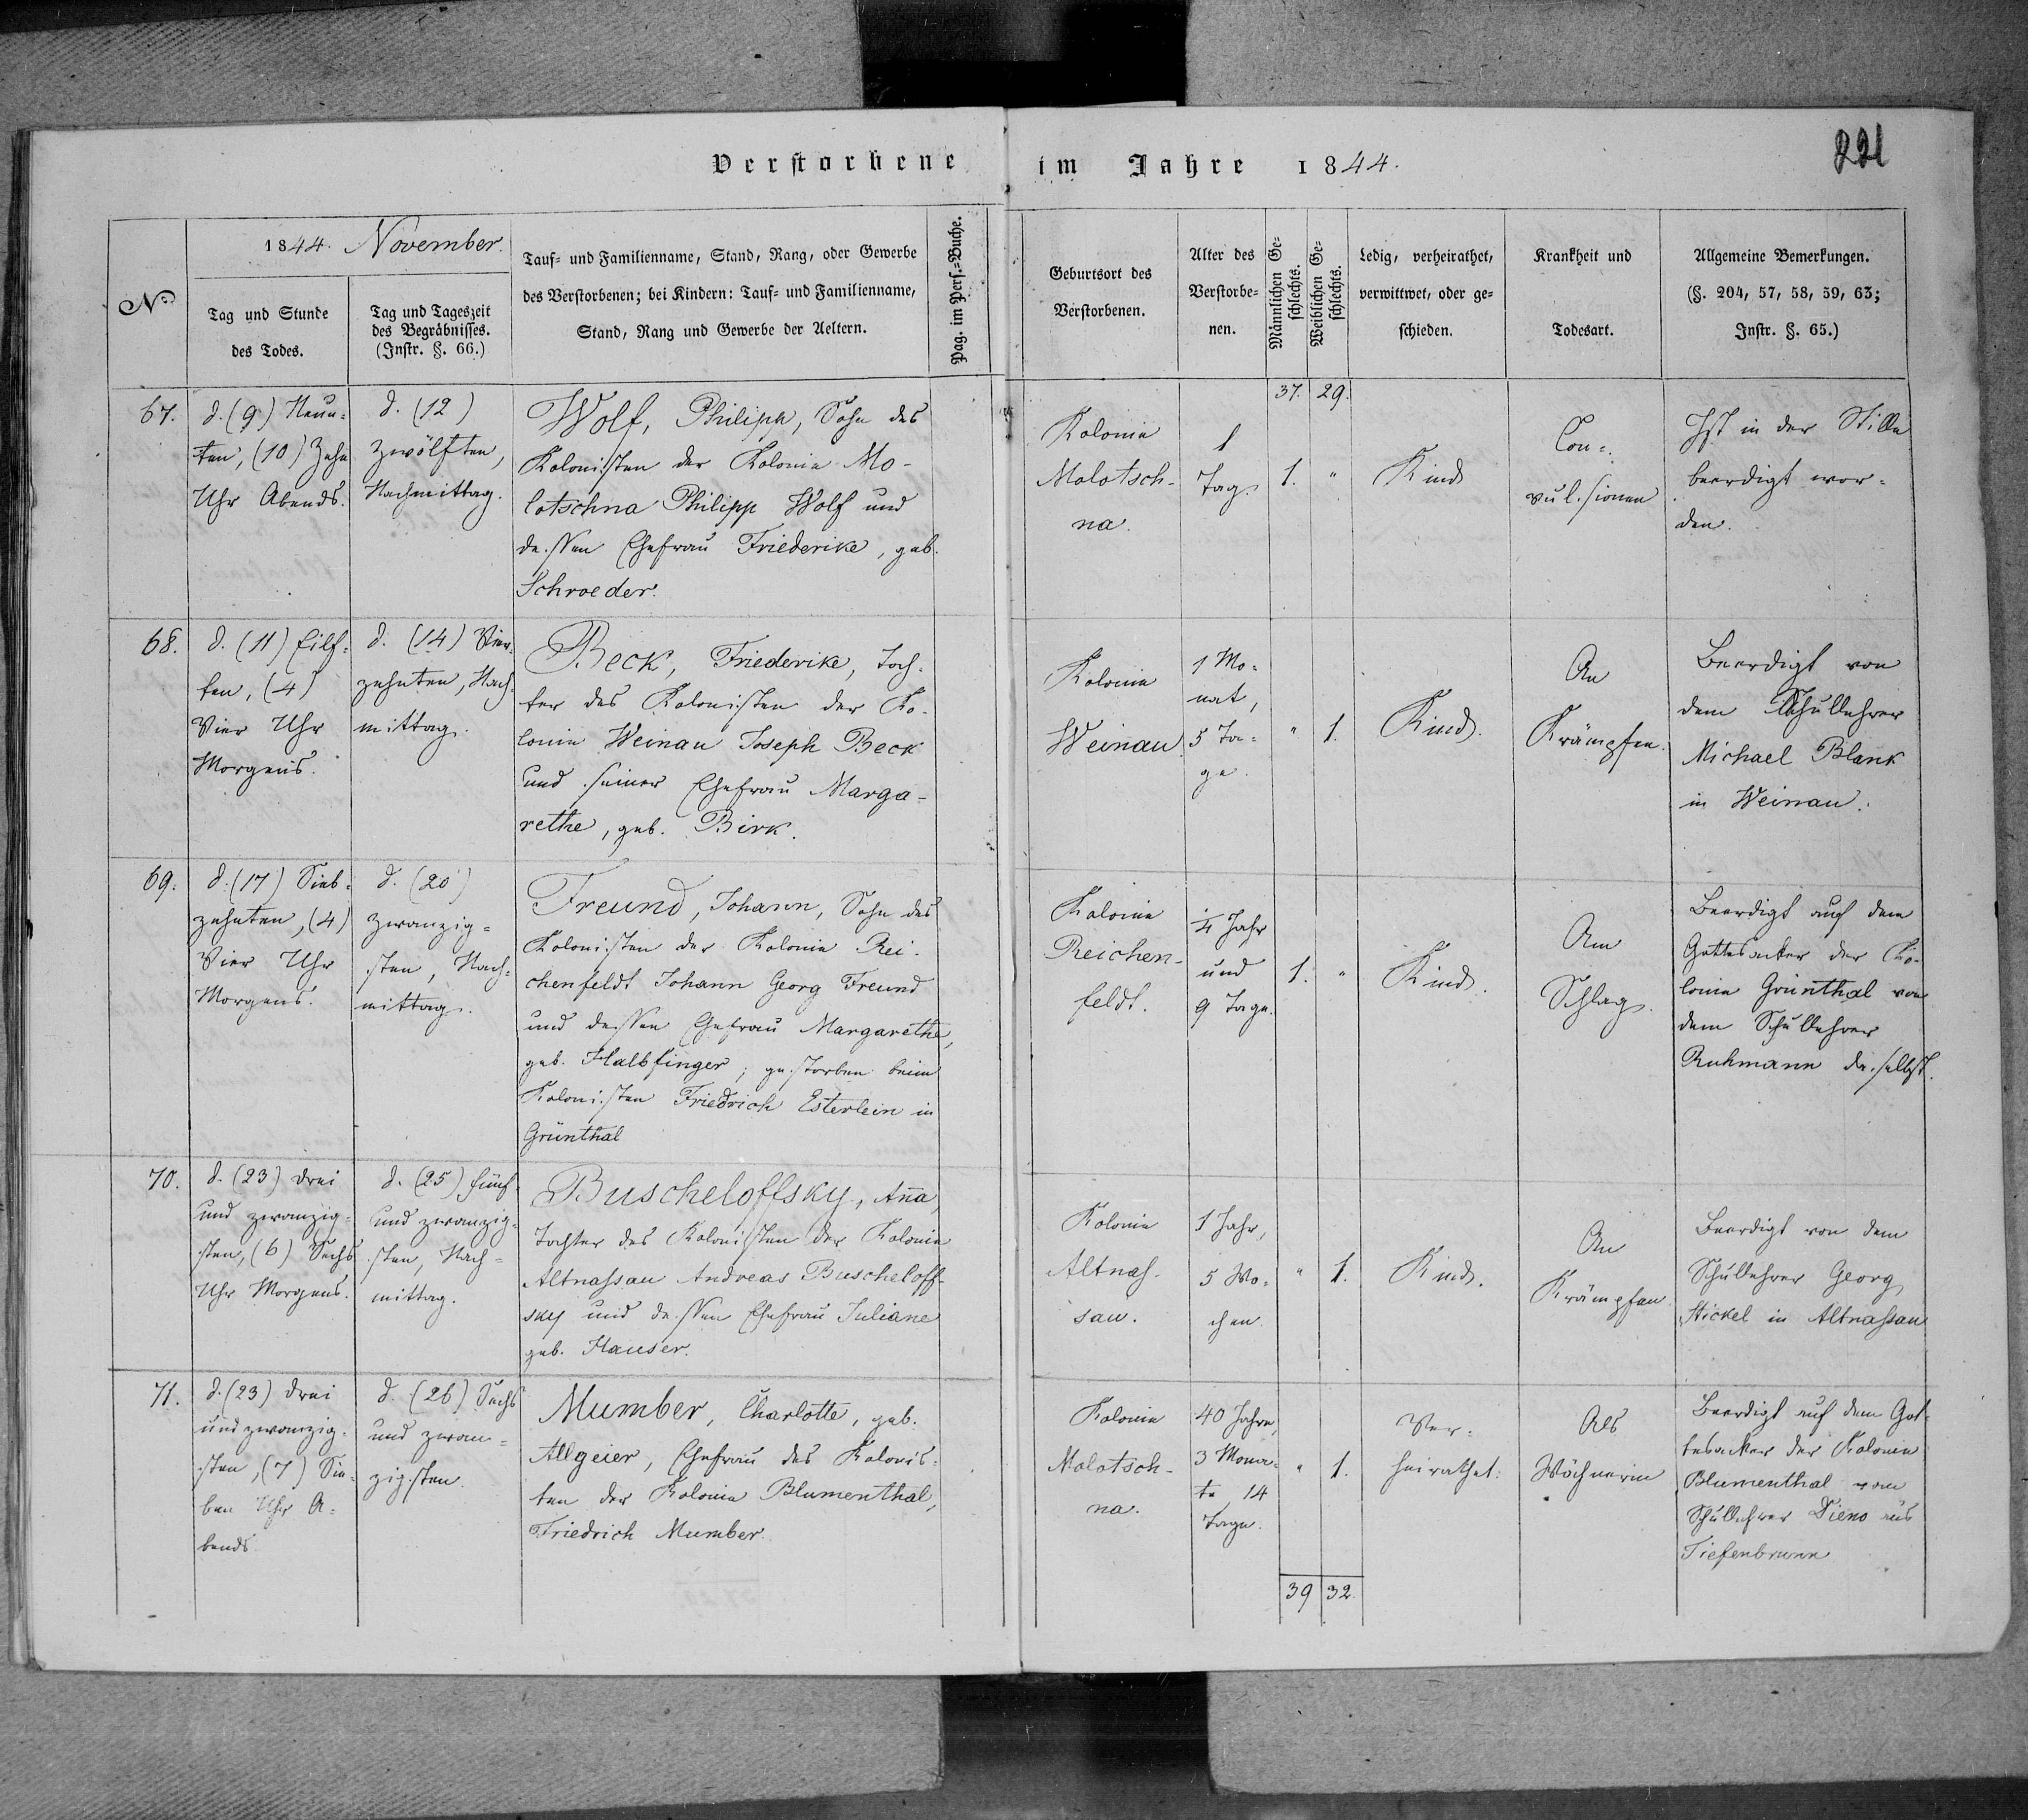 Verstorbene im Jahre 1844.
221
No
1844. November.
Tag und Stunde
des Todes.
Tag und Tageszeit
des Begräbnisses.
(Instr. §. 66.)
Tauf- und Familienname, Stand, Rang, oder Gewerbe
des Verstorbenen; bei Kindern: Tauf- und Familienname,
Stand, Rang und Gewerbe der Aeltern.
Pag. im Pers.-Buche.
Geburtsort des
Verstorbenen.
Alter des
Verstorbe-
nen.
Männlichen Ge-
schlechts.
Weiblichen Ge-
schlechts.
Ledig, verheirathet,
verwittwet, oder ge-
schieden.
Krankheit und
Todesart.
Allgemeine Bemerkungen.
(§. 204, 57, 58, 59, 63;
Instr. §. 65.)
37. 29.
67.
d. (9) Neun-
ten, (10) Zehn
Uhr Abends.
d. (12)
zwölften,
Nachmittag.
Wolf, Philipp, Sohn des
Kolonisten der Kolonie Mo-
lotschna Philipp Wolf und
dessen Ehefrau Friederike, geb.
Schroeder.
Kolonie
Molotsch-
na.
1
Tag.
1.
"
Kind
Con-
vulsionen
Ist in der Stille
beerdigt wor-
den.
68.
d. (11) Eilf-
ten, (4)
Vier Uhr
Morgens.
d. (14) Vier-
zehnten, Nach-
mittag.
Beck, Friederike, Toch-
ter des Kolonisten der Ko-
lonie Weinau Joseph Beck
und seiner Ehefrau Marga-
rethe, geb. Birk.
Kolonie
Weinau
1 Mo-
nat,
5 Ta-
ge.
"
1.
Kind.
An
Krämpfen.
Beerdigt von
dem Schullehrer
Michael Blank
in Weinau.
69.
d. (17) Sieb-
zehnten, (4)
Vier Uhr
Morgens.
d. (20)
zwanzig-
sten, Nach-
mittag.
Freund, Johann, Sohn des
Kolonisten der Kolonie Rei-
chenfeldt Johann Georg Freund
und dessen Ehefrau Margarethe,
geb. Halbfinger, gestorben beim
Kolonisten Friedrich Esterlein in
Grünthal
Kolonie
Reichen-
feldt.
1/4 Jahr
und
9 Tage.
1.
"
Kind.
Am
Schlag.
Beerdigt auf dem
Gottesacker der Ko-
lonie Grünthal von
dem Schullehrer
Ruhmann daselbst.
70.
d. (23) drei
und zwanzig-
sten, (6) Sechs
Uhr Morgens.
d. (25) fünf
und zwanzig-
sten, Nach-
mittag.
Buscheloffsky, Anna,
Tochter des Kolonisten der Kolonie
Altnassau Andreas Buscheloff-
sky und dessen Ehefrau Juliane
geb. Hauser.
Kolonie
Altnas-
sau.
1 Jahr,
5 Wo-
chen.
"
1.
Kind.
An
Krämpfen
Beerdigt von dem
Schullehrer Georg
Stickel in Altnassau
71.
d. (23) drei
und zwanzig-
sten, (7) Sie-
ben Uhr A-
bends
d. (26) Sechs
und zwan-
zigsten.
Mumber, Charlotte, geb.
Allgeier, Ehefrau des Kolonis-
ten der Kolonie Blumenthal,
Friedrich Mumber.
Kolonie
Molotsch-
na.
40 Jahre,
3 Mona-
te, 14
Tage.
"
1.
Ver-
heirathet.
Als
Wöchnerin
Beerdigt auf dem Got-
tesacker der Kolonie
Blumenthal vom
Schullehrer Dieno aus
Tiefenbrunn
39 32.